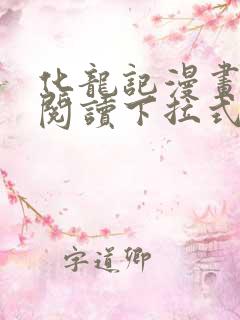 化龍記漫畫
閱讀下拉式
字道卿